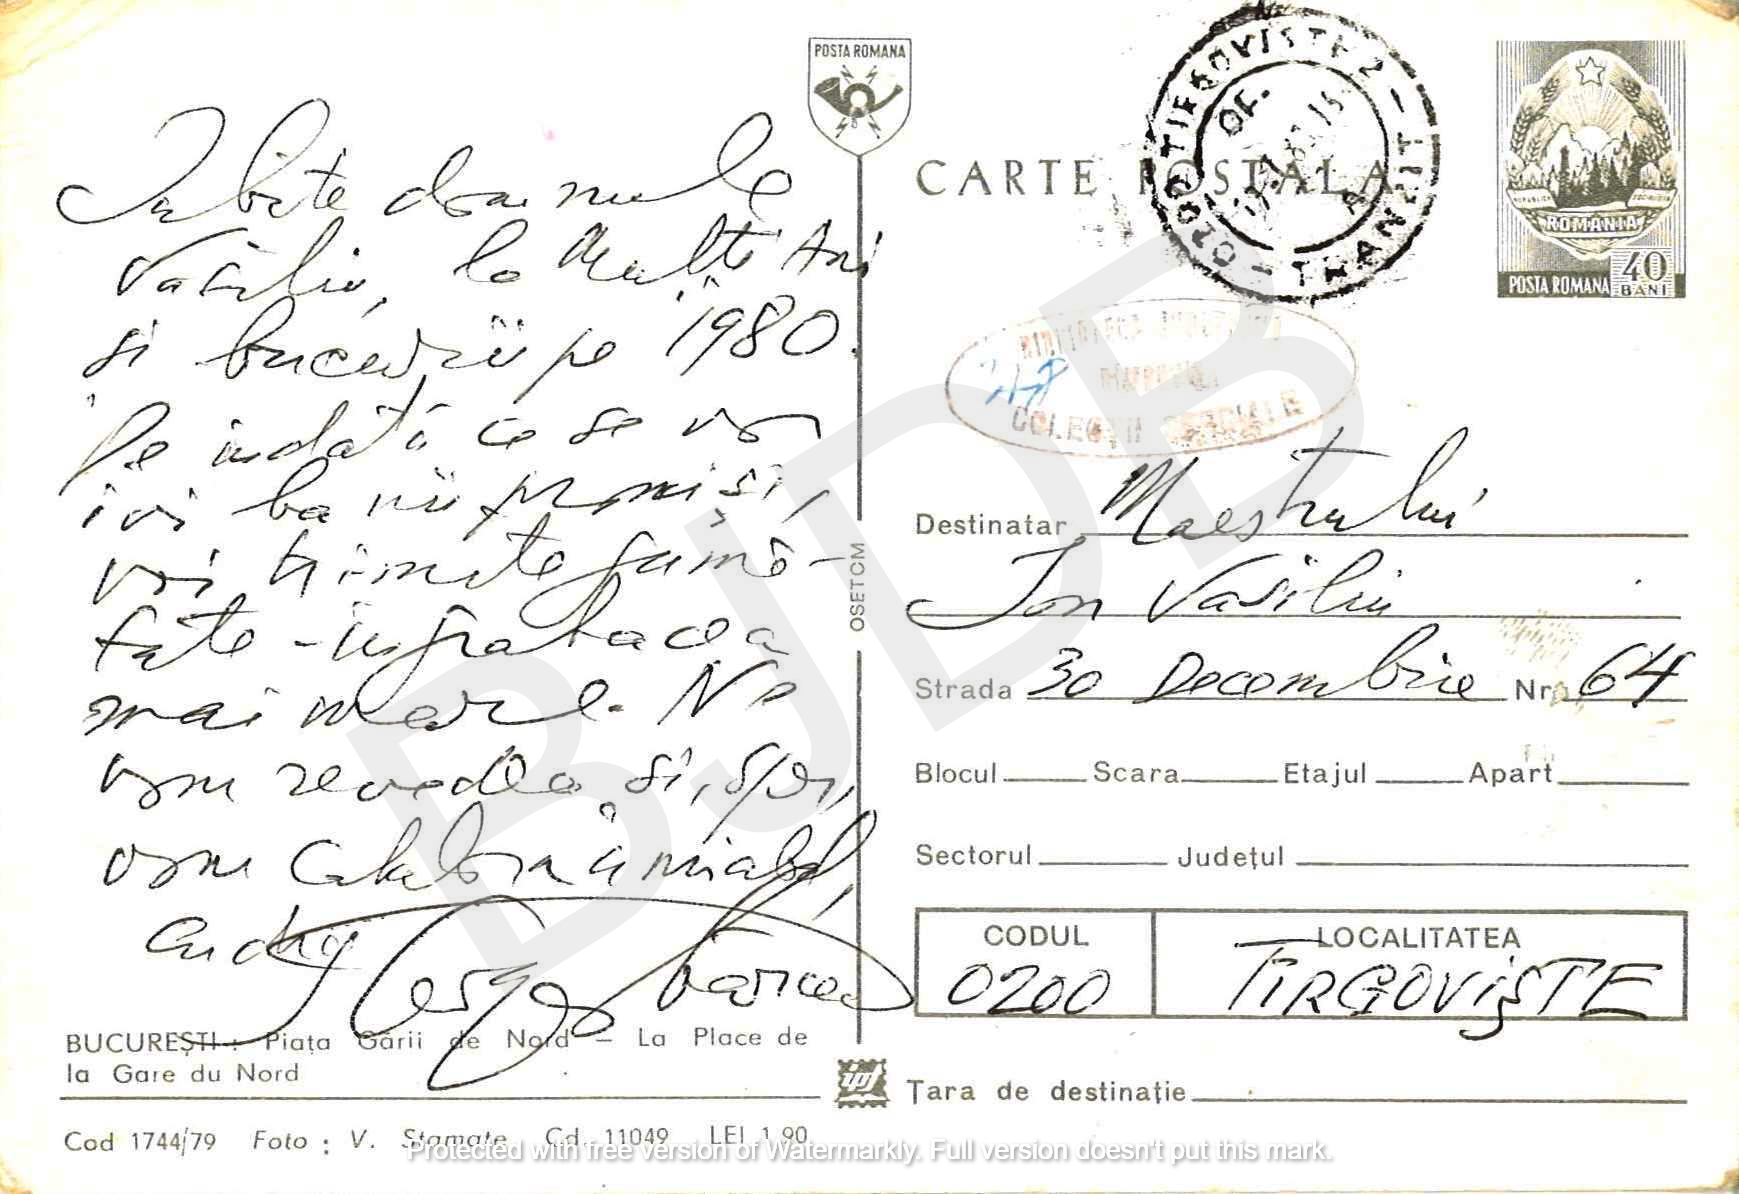 Iubite domnule
Vasiliu, la Mulți Ani
și bucurii pe 1980.
De îndată ce se vor
ivi banii promiși,
voi trimite jumă-
tate - îngrabacea
mai mare. Ne
vom revedea și, sper,
vom colabora
BUCUREȘTI: Piața Gării de Nord – La Place de
la Gare du Nord
Cod 1744/79 Foto: V. Stamate Cd. 11049 LEI 1,90
POSTA ROMANA
OSETCM
CARTE POSTALA
TIRGOVISTE 2
TRANZIT
ROMANIA
POSTA ROMANA 40 BANI
COLECȚII SPECIALE
Destinatar Maestrului
Ion Vasiliu
Strada 30 Decembrie Nr. 64
Blocul Scara Etajul Apart
Sectorul Județul
CODUL LOCALITATEA
0200 TIRGOVIȘTE
Țara de destinație
BJDB
Protected with free version of Watermarkly. Full version doesn't put this mark.